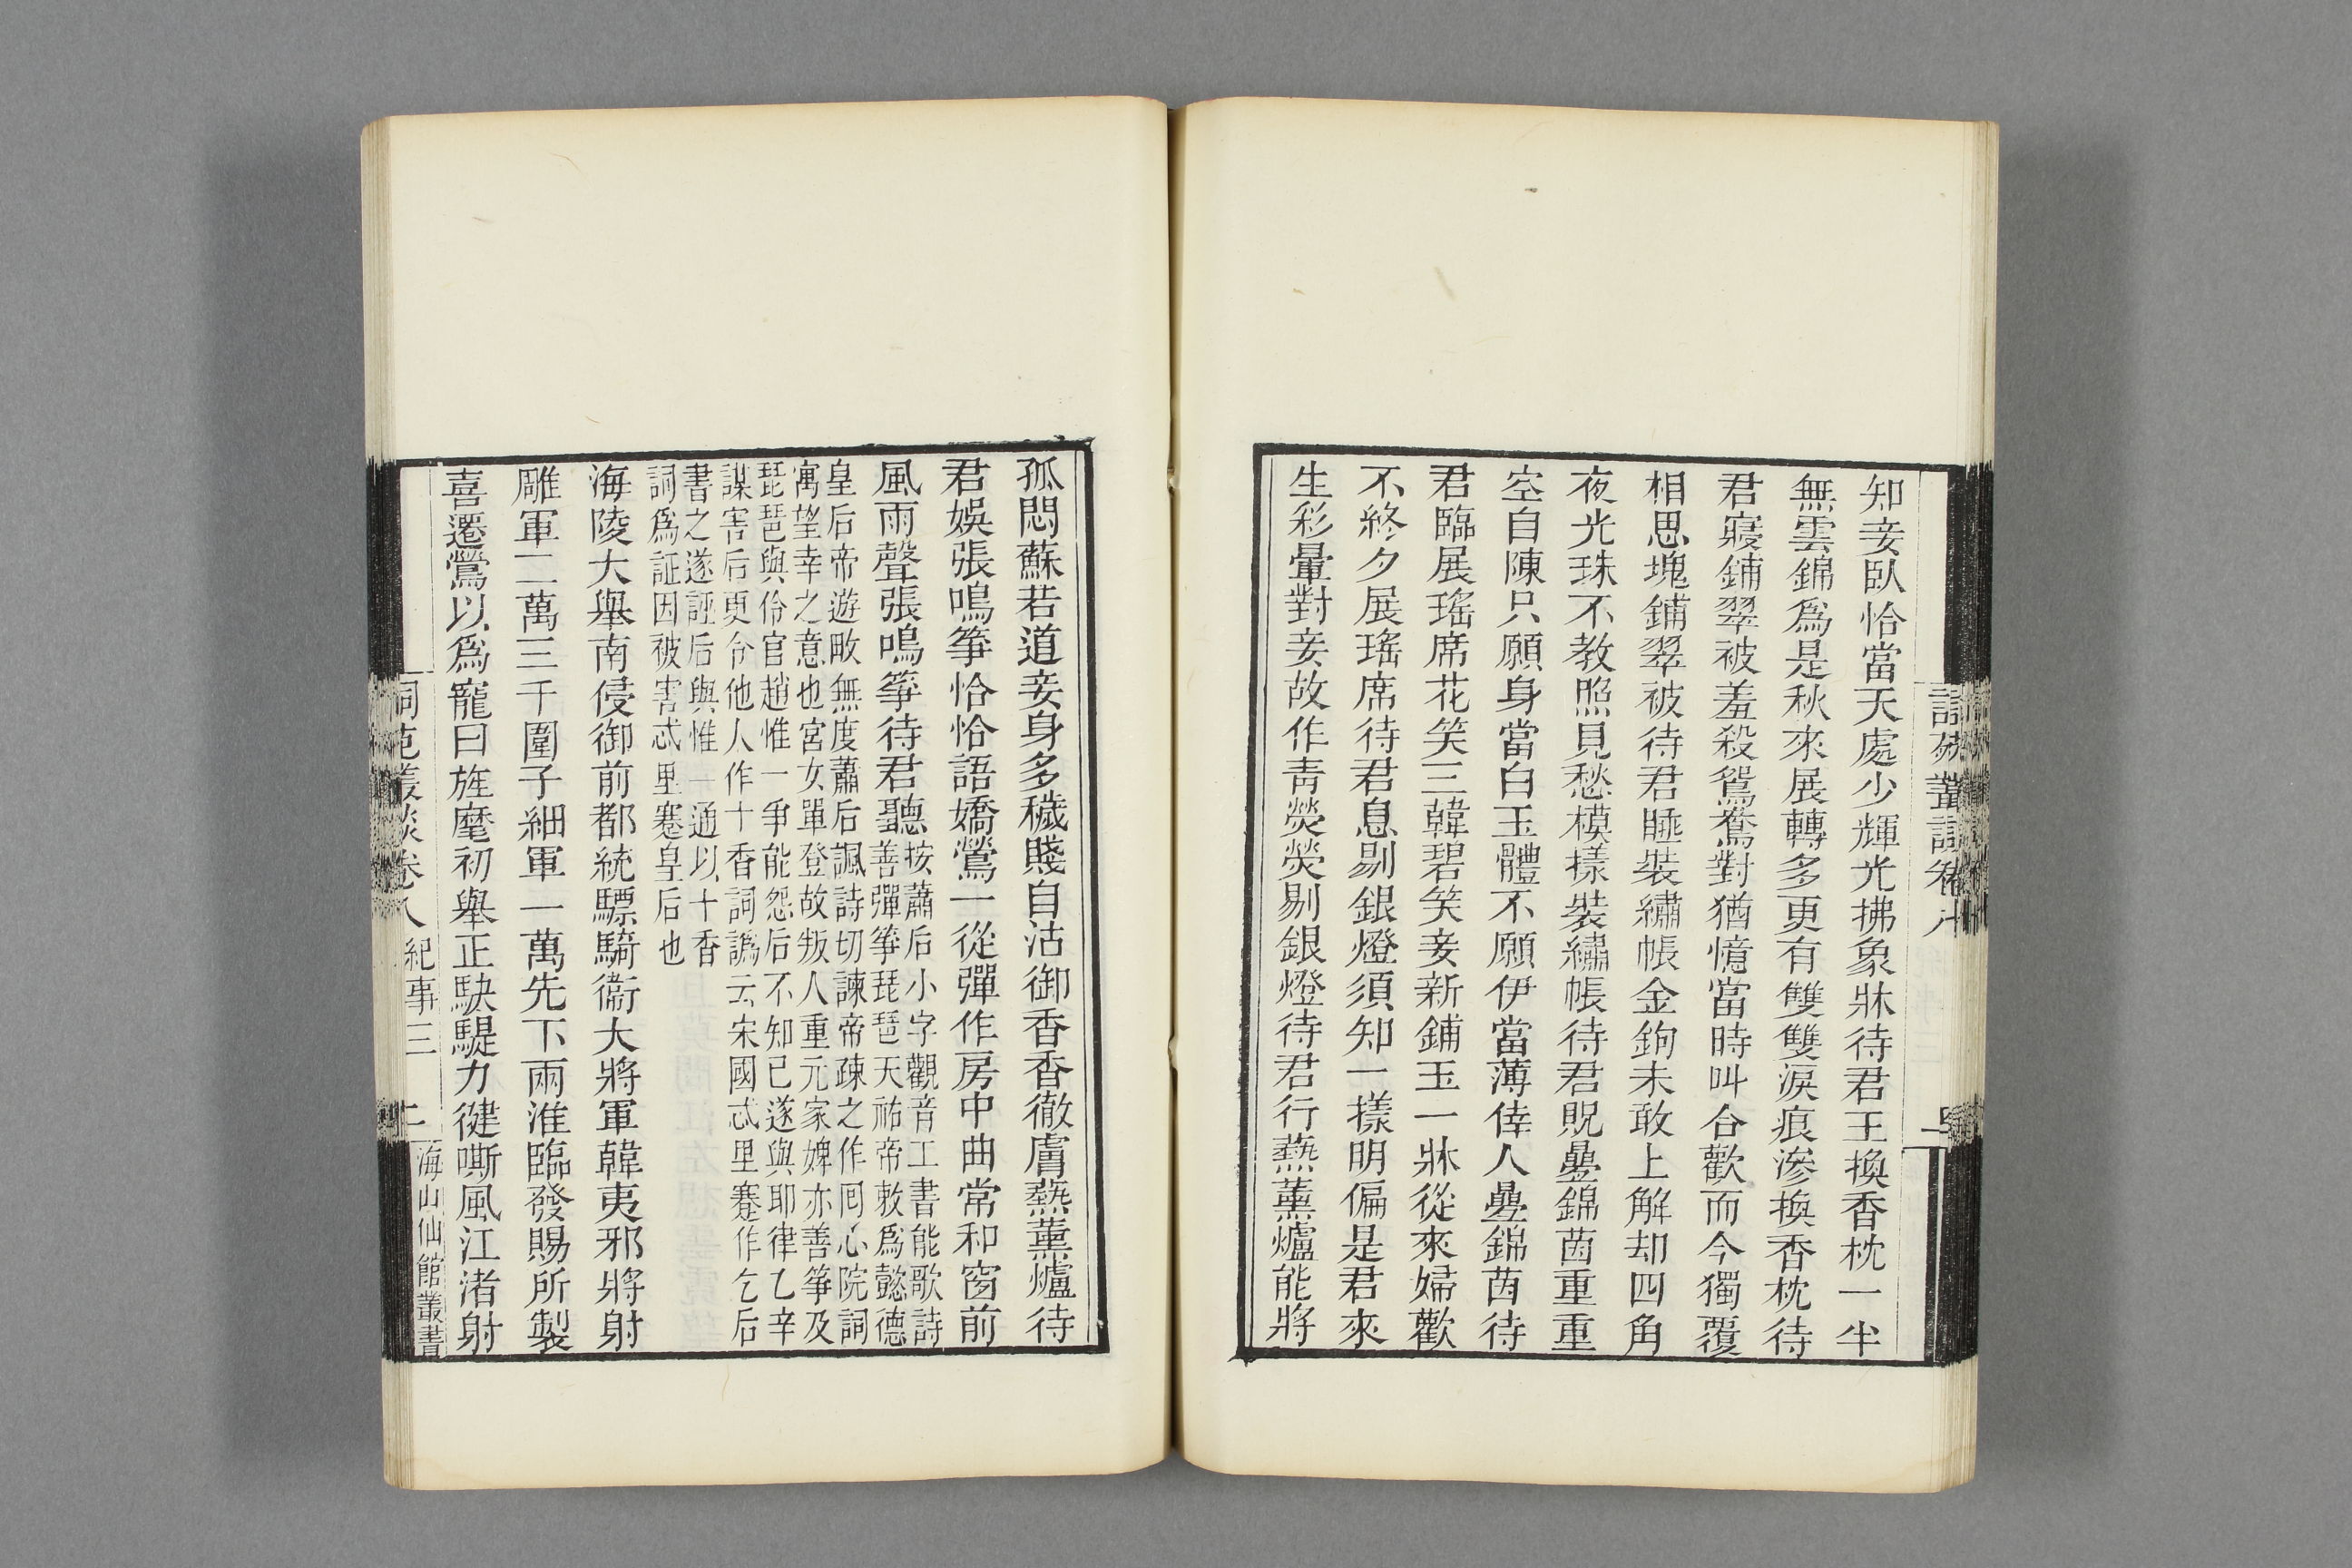 知妾臥恰當天處少輝光拂象牀待君王換香枕一半
無雲錦爲是秋來展轉多更有雙雙淚痕滲換香枕待
君寢鋪翠被羞殺鴛鴦對猶憶當時叫合歡而今獨覆
相思塊鋪翠被待君睡裝繡帳金鉤未敢上解却四角
夜光珠不教照見愁模樣裝繡帳待君貺疊錦茵重重
空自陳只願身當白玉體不願伊當薄倖人疊錦茵待
君臨展瑤席花笑三韓碧笑妾新鋪玉一牀從來婦歡
不終夕展瑤席待君息剔銀燈須知一樣明偏是君來
生彩暈對妾故作靑熒熒剔銀燈待君行爇薰爐能將
孤悶蘇若道妾身多穢賤自沽御香香徹膚爇薰爐待
君娛張鳴箏恰恰語嬌鶯一從彈作房中曲常和窗前
風雨聲張鳴箏待君聽按蕭后小字觀音工書能歌詩
善彈箏琵琶天祐帝敕爲懿德
皇后帝遊畋無度蕭后諷詩切諫帝疎之作囘心院詞
寓望幸之意也宮女單登故叛人重元家婢亦善箏及
琵琶與伶官趙惟一爭能怨后不知已遂與耶律乙辛
謀害后更令他人作十香詞譌云宋國忒里蹇作乞后
書之遂誣后與惟一通以十香
詞爲証因被害忒里蹇皇后也
海陵大舉南侵御前都統驃騎衞大將軍韓夷邪將射
雕軍二萬三千圍子細軍一萬先下兩淮臨發賜所製
喜遷鶯以爲寵曰旌麾初舉正駃騠力健嘶風江渚射
詞苑叢談卷八 紀事三 二 海山仙館叢書